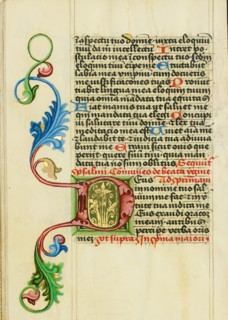 in conspectu tuo domine iuxta eloquium
tuum da m intellectum Intret pos
tulatio mea i conspectu tuo secdm
eloquium tuu eripe me Eructabut
labia mea ympnum cum docueris
me iustificacões tuas Pronunc
iabit lingua mea eloquium tuum
quia omia mādata tua equitas
fiat manus tua ut saluet me quo
niam mādata tua elegi Concupi
ui salutare tuu domine et lex tua
meditatio mea est Uiuet aīa mea
et laudabit te et iudicia tua adiuua
bunt me Erraui sicut ouis que
perijt quere seruu tuu quia man
data tua no sum oblitus Sequit
psalmi Comunes de beata virgine
Deus Ad primam
in nomine tuo sal
uum me fac et in vir
tute tua iudica me
Deus exaudi oracoez
meam auribus
percipe verba oris
mei ut supra In prima maiori